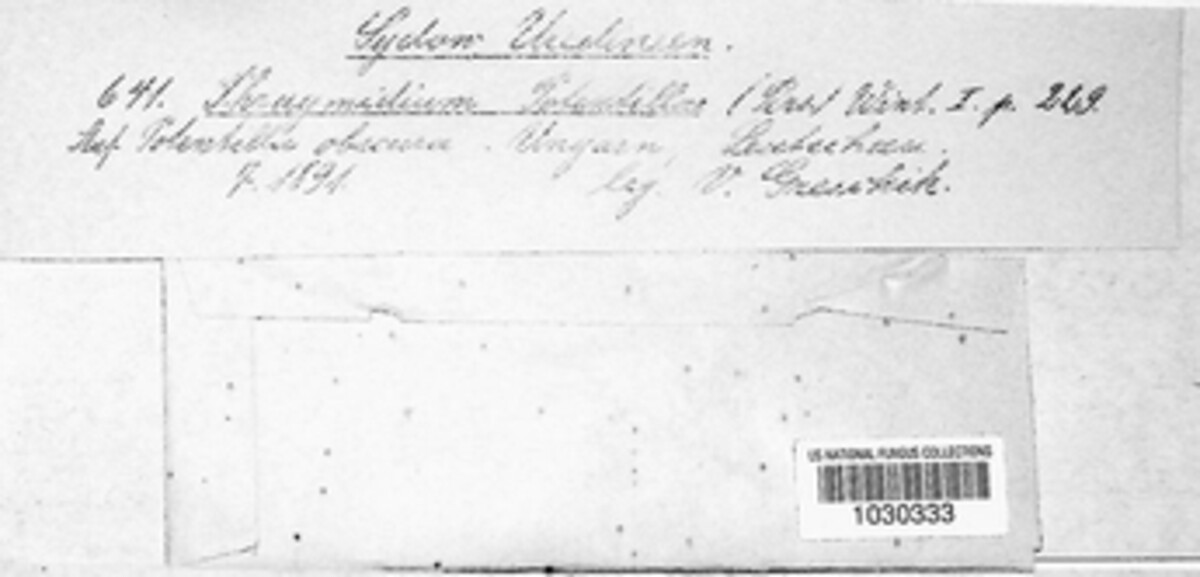 Sydow, Uredineen.
641. Phragmidium Potentillae (Pers) Wint. I. p. 229.
Auf Potentilla obscura. Ungarn, Leutschau.
7. 1891. leg. V. Greschik.
US NATIONAL FUNGUS COLLECTIONS
1030333